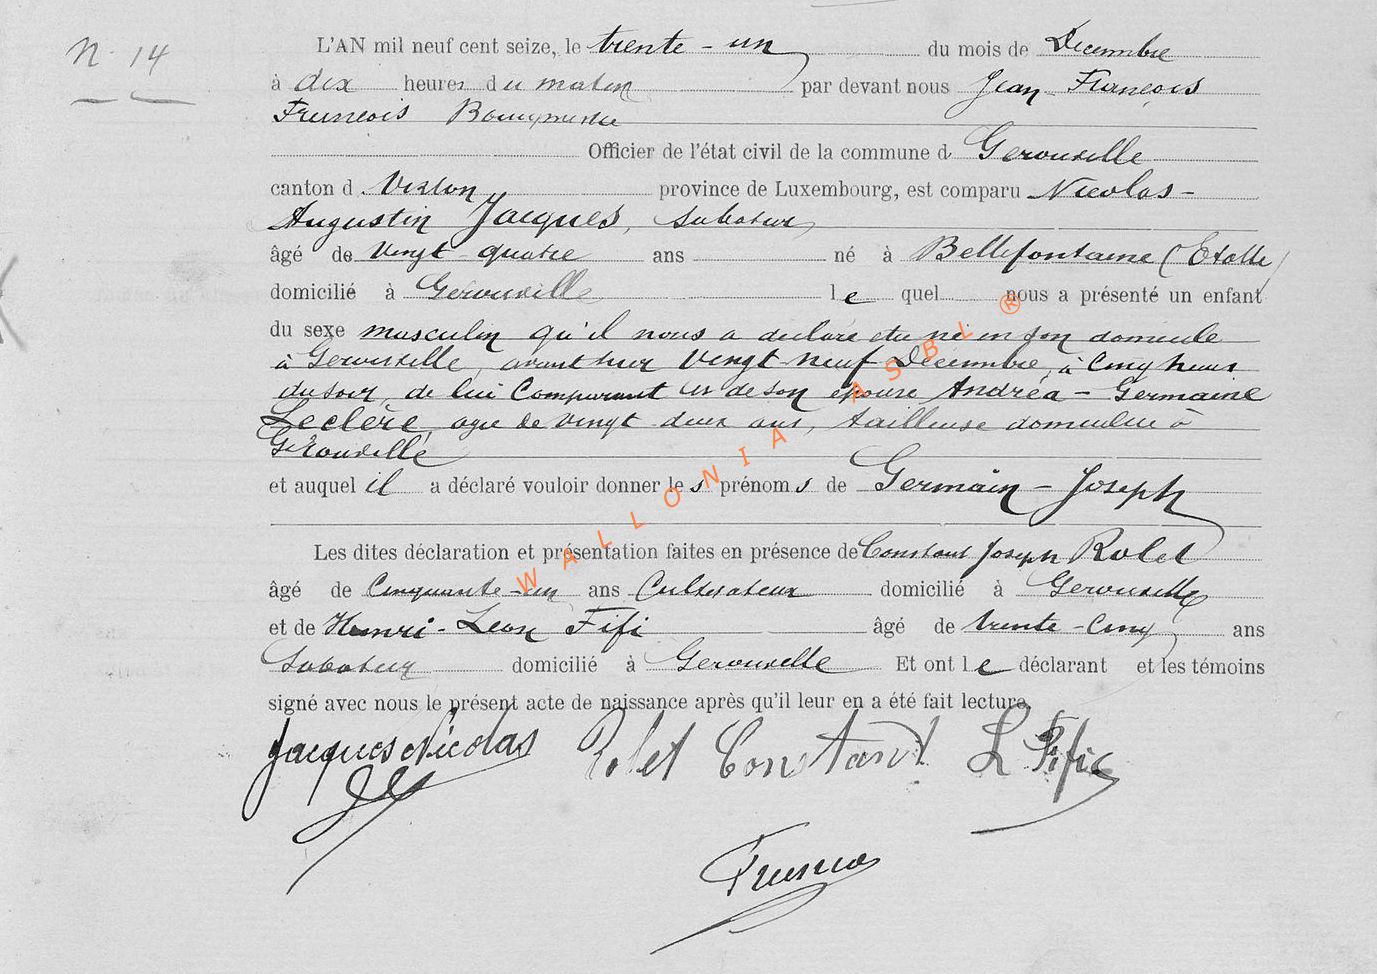 N. 14
L'AN mil neuf cent seize, le trente - un du mois de Decembre
à dix heures du matin par devant nous Jean François
François
Officier de l'état civil de la commune d Gerouville
canton d Virton province de Luxembourg, est comparu Nicolas -
Augustin Jacques, Sabotier
âgé de vingt-quatre ans né à Bellefontaine (Etalle)
domicilié à Gerouville le quel nous a présenté un enfant
du sexe masculin qu'il nous a declaré etre né en son domicile
à Gerouville, avant hier vingt neuf Decembre, à cinq heures
du soir, de lui Comparant et de son epouse Andréa - Germaine
Leclère, agée de vingt deux ans, tailleuse domiciliée à
Gérouville
et auquel il a déclaré vouloir donner les prénoms de Germain - Joseph
Les dites déclaration et présentation faites en présence de Constant Joseph Rolet
âgé de Cinquante-un ans Cultivateur domicilié à Gerouville
et de Henri - Leon Fifi âgé de trente-cinq ans
Sabotier domicilié à Gerouville Et ont le déclarant et les témoins
signé avec nous le présent acte de naissance après qu'il leur en a été fait lecture.
Jacques Nicolas Rolet Constant L Fifi
WALLONIA ASBL ®